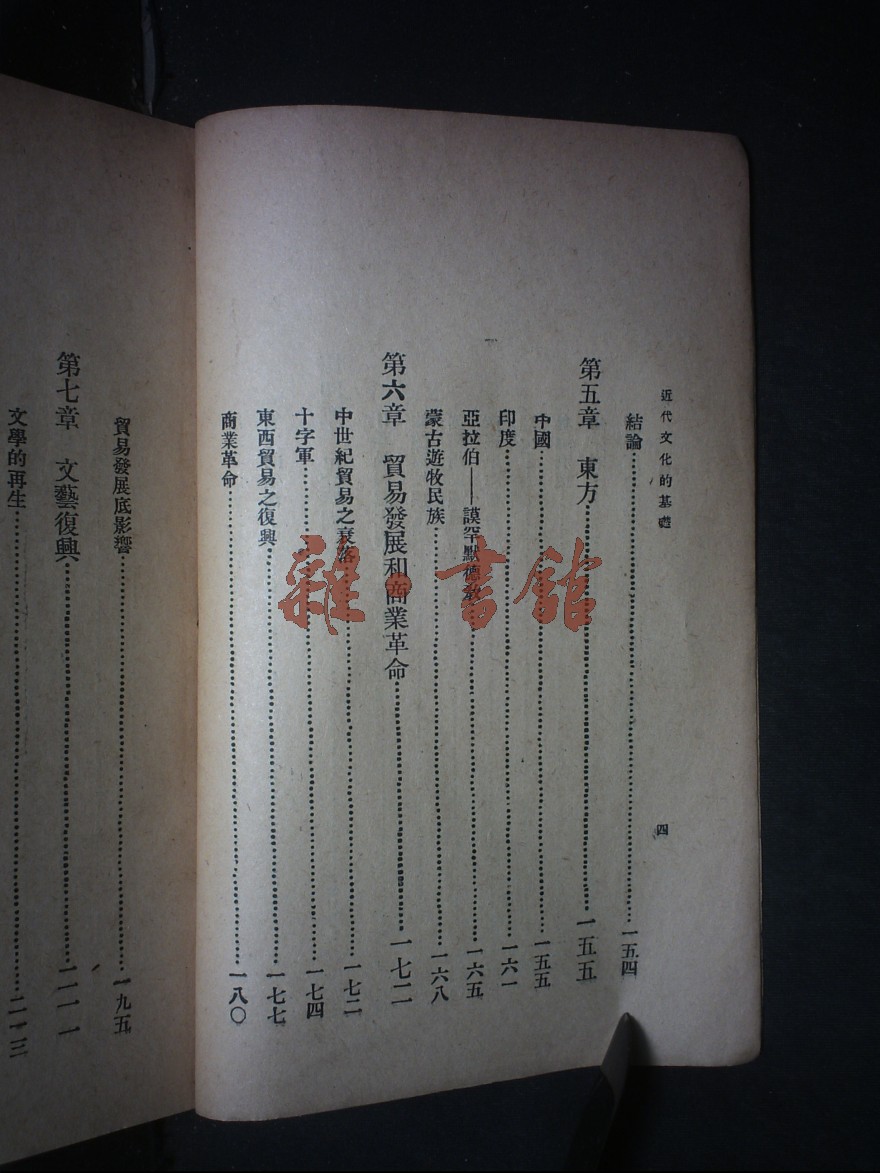 近代文化的基礎
四
結論……一五四
第五章 東方……一五五
中國……一五五
印度……一六一
亞拉伯——謨罕默德敎……一六五
蒙古遊牧民族……一六八
第六章 貿易發展和商業革命……一七二
中世紀貿易之衰落……一七二
十字軍……一七四
東西貿易之復興……一七七
商業革命……一八〇
貿易發展底影響……一九五
第七章 文藝復興……二一一
文學的再生……二一三
雜·書館